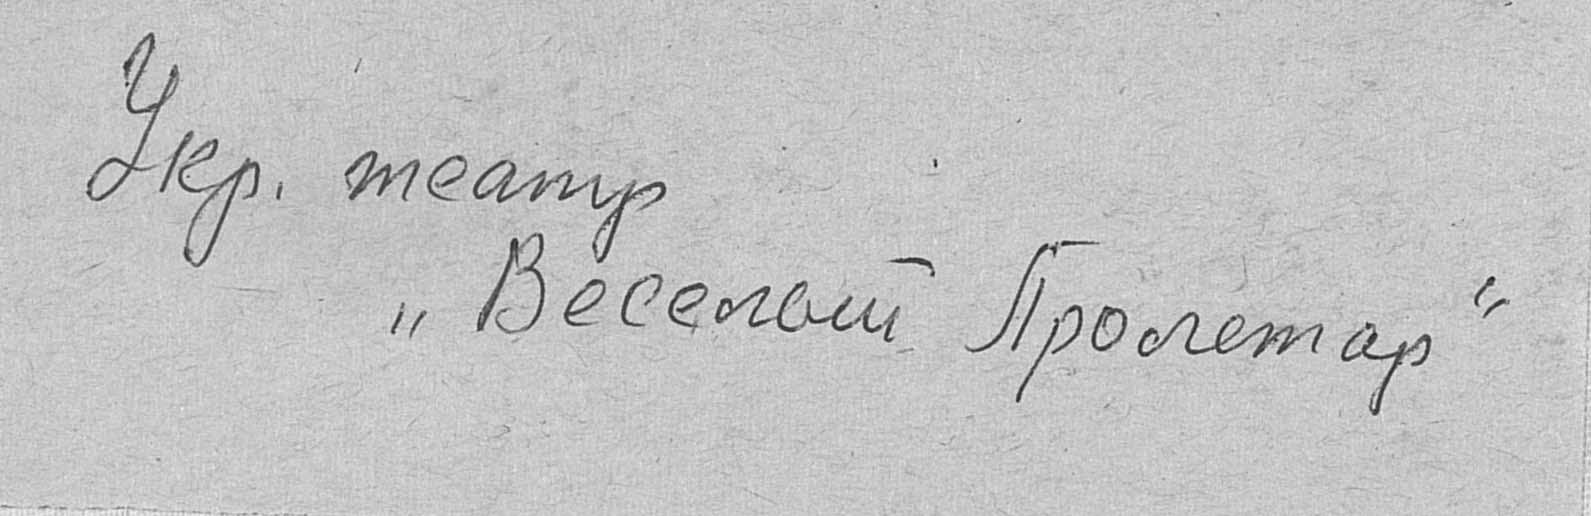 Укр. театр
„Веселый Пролетар“